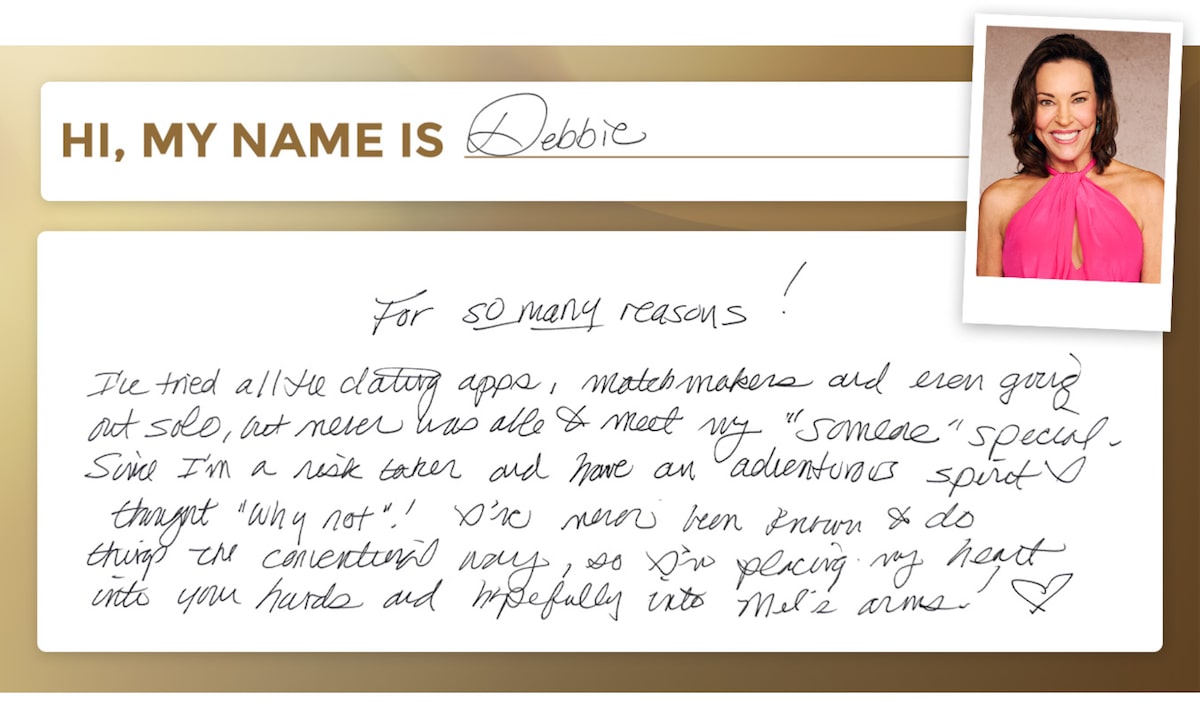 HI, MY NAME IS Debbie
For so many reasons!
I've tried all the dating apps, matchmakers and even going
out solo, but never was able to meet my "someone" special.
Since I'm a risk taker and have an adventurous spirit I
thought "why not"! I've never been known to do
things the conventional way, so I'm placing my heart
into your hands and hopefully into Mel's arms!